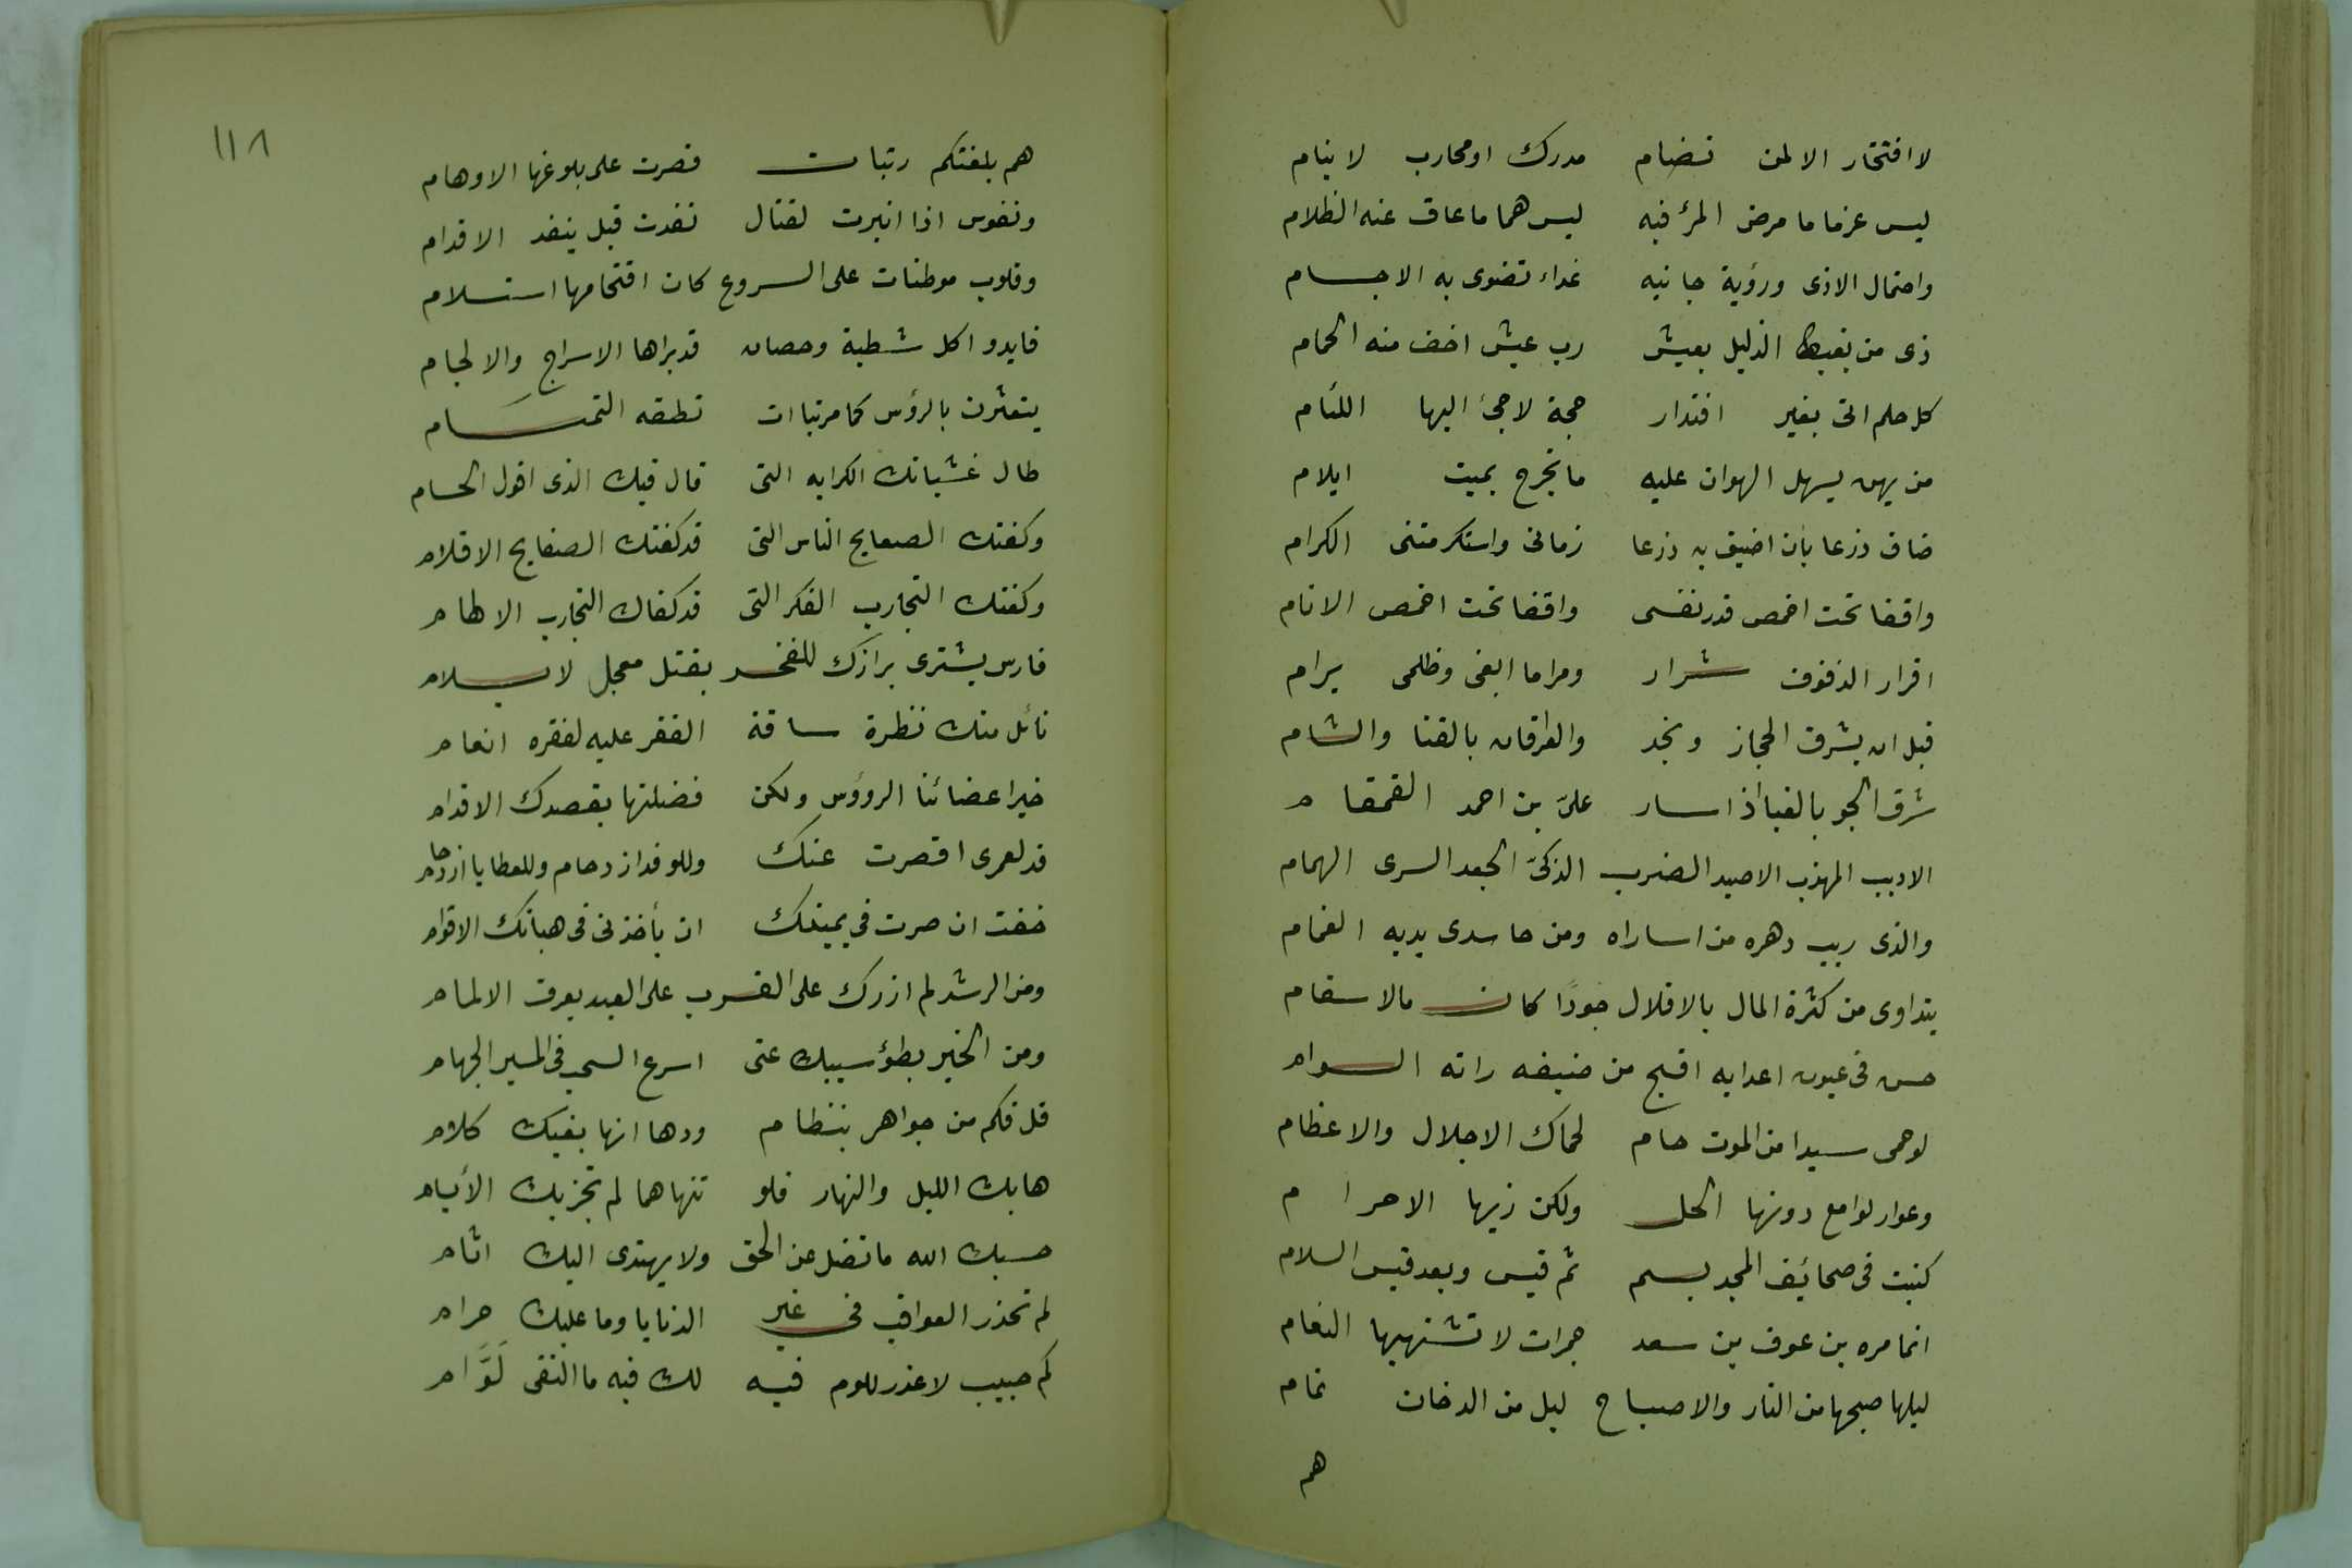 لا افتخار الا لمن تضام مدرك او محارب لا ينام
ليس عزما ما مرض المرٔ فيه ليس هما ما عاق عنه الظلام
واحتمال الاذى ورؤية جانيه غداء تضوى به الاجسام
ذى من يغبط الذليل بعيش رب عيش اخف منه الحمام
كل حلم اتى بغير اقتدار حجة لاجئ اليها اللئام
من يهن يسهل الهوان عليه ما تجرح بميت ايلام
ضاق ذرعا بان اضيق به ذرعا زمانى واستكرمتنى الكرام
واقفا تحت اخمص قدر نفسى واقفا تحت اخمص الانام
اقرار الذ فوق شرار ومراما ابغى وظلمى يرام
قبل ان يشرق الحجاز ونجد والعراقان بالقنا والشام
شرق الجو بالغبا اذا سار علىّ بن احمد القمقام
الاديب المهذب الاصيد الضرب الذكىّ الجعد السرى الهمام
والذى ريب دهره من اساراه ومن حاسدى يديه الغمام
يتداوى من كثرة المال بالاقلال جودًا كان مالا سقام
حسن فى عيون اعدايه اقبح من ضيفه راته السوام
لو حمى سيدا من الموت حام لحماك الاجلال والاعظام
وعوار لوامع دونها الحل ولكن زيها الاحرام
كتبت فى صحائف المجد بسم ثم قيس وبعد قيس السلام
انما مره بن عوف بن سعد جمرات لا تشتهيها النعام
ليلها صبحها من النار والاصباح ليل من الدخان تمام
هم
١١٨
هم بلغتكم رتبات قصرت على بلوغها الاوهام
ونفوس اذا انبرت لقتال نفدت قبل ينفد الاقدام
وقلوب موطنات على السروع كان اقتحامها استسلام
قايدوا كل شطبة وحصان قد براها الاسراج والالجام
يتعثرن بالرؤس كما مر بتاات نطقه التمتام
طال غشيانك الكرايه التى قال فيك الذى اقول الحسام
وكفتك الصفايح الناس التى قد كفتك الصفايح الاقلام
وكفتك التجارب الفكر التى قد كفاك التجارب الالهام
فارس يشترى برازك للفخر بقتل معجل لا يسلام
نائل منك نظرة ساقة الفقر عليه لفقره انعام
خير اعضائنا الروؤس ولكن فضلتها بقصدك الاقدام
قد لعمرى اقصرت عنك وللوفد ازدحام وللعطايا ازدحام
خفت ان صرت فى يمينك ان يأخذنى فى هباتك الاقوام
ومن الرشد لم ازرك على القسرب على البعد يعرف الالمام
ومن الخير بطؤ سيبك عنى اسرع السحب فى المسير الجهام
قل فكم من جواهر بنظام ودها انها بفيك كلام
هابك الليل والنهار فلو تنهاهما لم تجز بك الأيام
حسبك الله ما تضل عن الحق ولا يهتدى اليك اثام
لم تحذر العواقب فى غير الدنايا وما عليك حرام
كم حبيب لا عذر للوم فيه لك فيه ما التقى لَوَّام